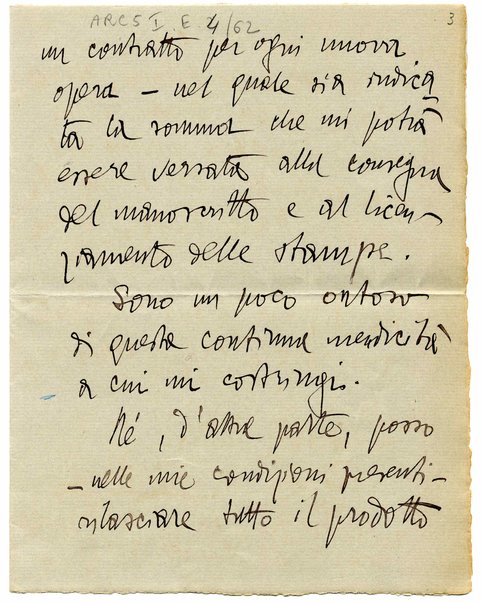 ARC 5 I E 4/62
3
un contratto per ogni nuova
opera – nel quale sia indica
ta la somma che mi potrà
essere versata alla consegna
del manoscritto e al licen-
ziamento delle stampe.
Sono un poco ontoso
di questa continua mendicità
a cui mi costringi.
Né, d'altra parte, posso
– nelle mie condizioni presenti –
rilasciare tutto il prodotto